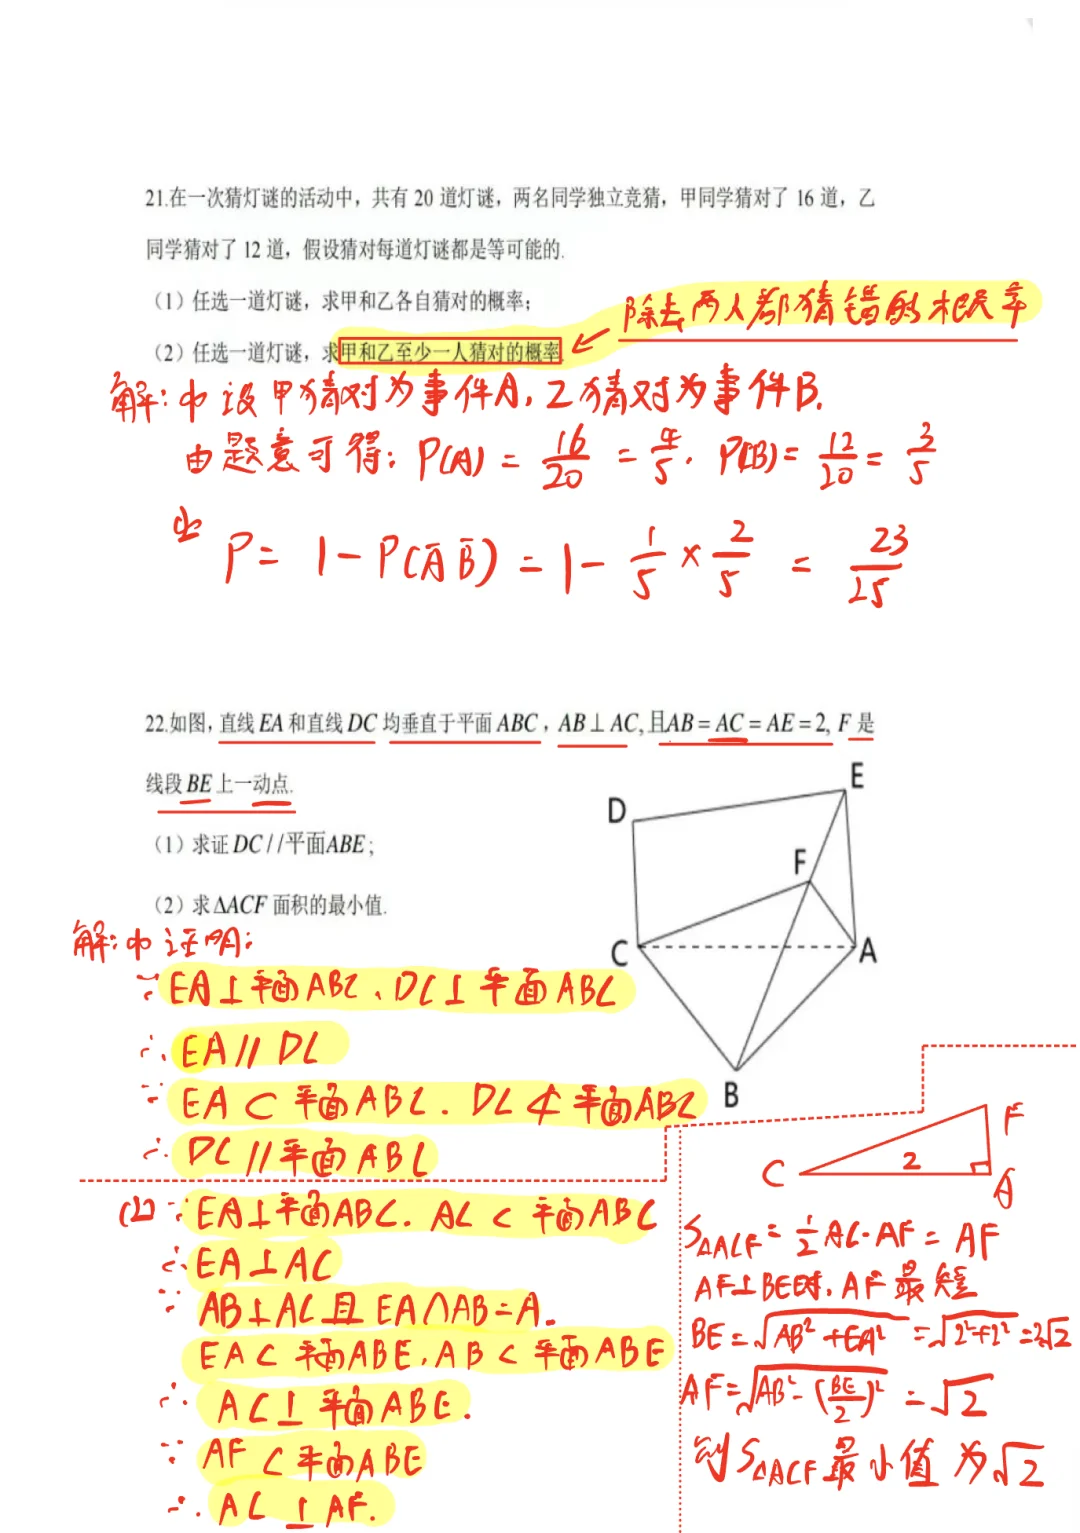 21.在一次猜灯谜的活动中，共有 20 道灯谜，两名同学独立竞猜，甲同学猜对了 16 道，乙
同学猜对了 12 道，假设猜对每道灯谜都是等可能的.
（1）任选一道灯谜，求甲和乙各自猜对的概率；
（2）任选一道灯谜，求甲和乙至少一人猜对的概率.
除去两人都猜错的概率
解:(1) 设甲猜对为事件A,乙猜对为事件B.
由题意可得: P(A) = 16/20 = 4/5. P(B) = 12/20 = 3/5
(2)
P = 1 - P(A̅ B̅) = 1 - 1/5 × 2/5 = 23/25
22.如图，直线 EA 和直线 DC 均垂直于平面 ABC，AB⊥AC,且AB=AC=AE=2, F 是
线段 BE 上一动点.
（1）求证 DC//平面ABE；
（2）求 ΔACF 面积的最小值.
D
E
F
C
A
B
解:(1) 证明:
∵ EA⊥平面ABC、DC⊥平面ABC
∴ EA∥DC
∵ EA⊂平面ABC. DC⊄平面ABC
∴ DC∥平面ABC
(2) ∵ EA⊥平面ABC. AC⊂平面ABC
∴ EA⊥AC
∵ AB⊥AC且EA∩AB=A.
EA⊂平面ABE,AB⊂平面ABE
∴ AC⊥平面ABE.
∵ AF⊂平面ABE
∴ AC⊥AF.
F
C
2
A
S△ACF = 1/2 AC·AF = AF
AF⊥BE时,AF最短
BE=√AB²+EA² =√2²+2² =2√2
AF=√AB²-(BE/2)² =√2
则S△ACF最小值为√2